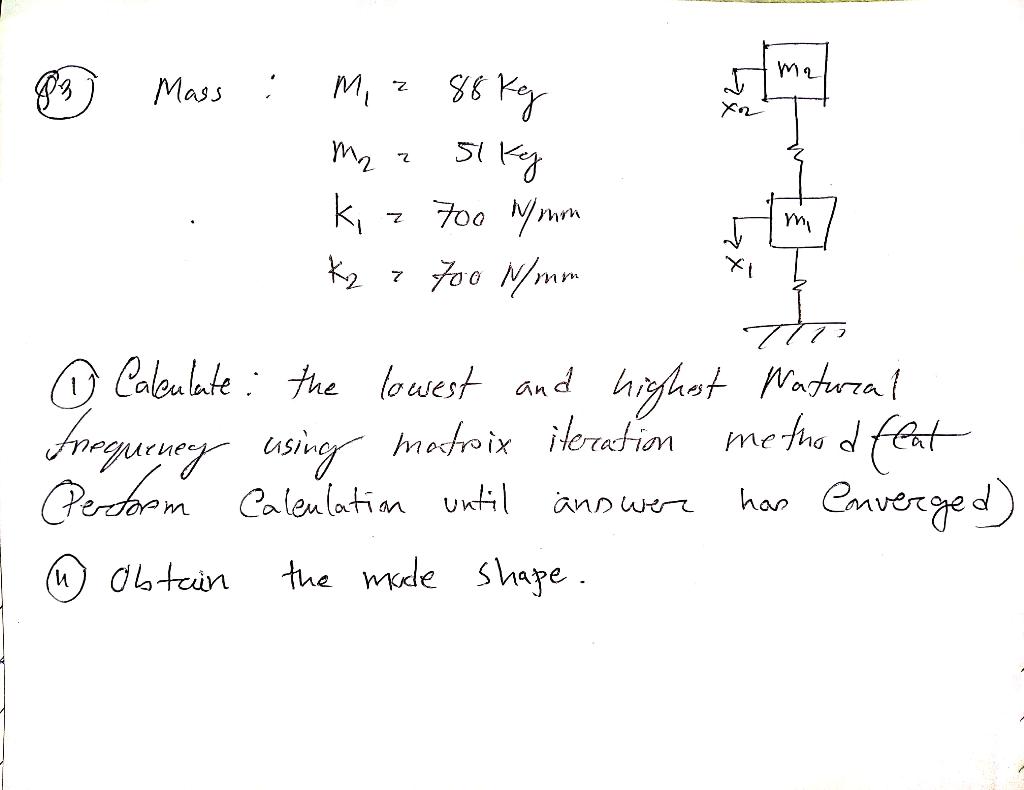 P3) Mass : M₁ = 88 Kg
m₂ = 51 Kg
K₁ = 700 N/mm
K₂ = 700 N/mm
m₂
x₂
m₁
x₁
(i) Calculate : the lowest and highest Natural
frequency using matrix iteration method
(Perform Calculation until answer has Converged)
(ii) Obtain the mode shape.